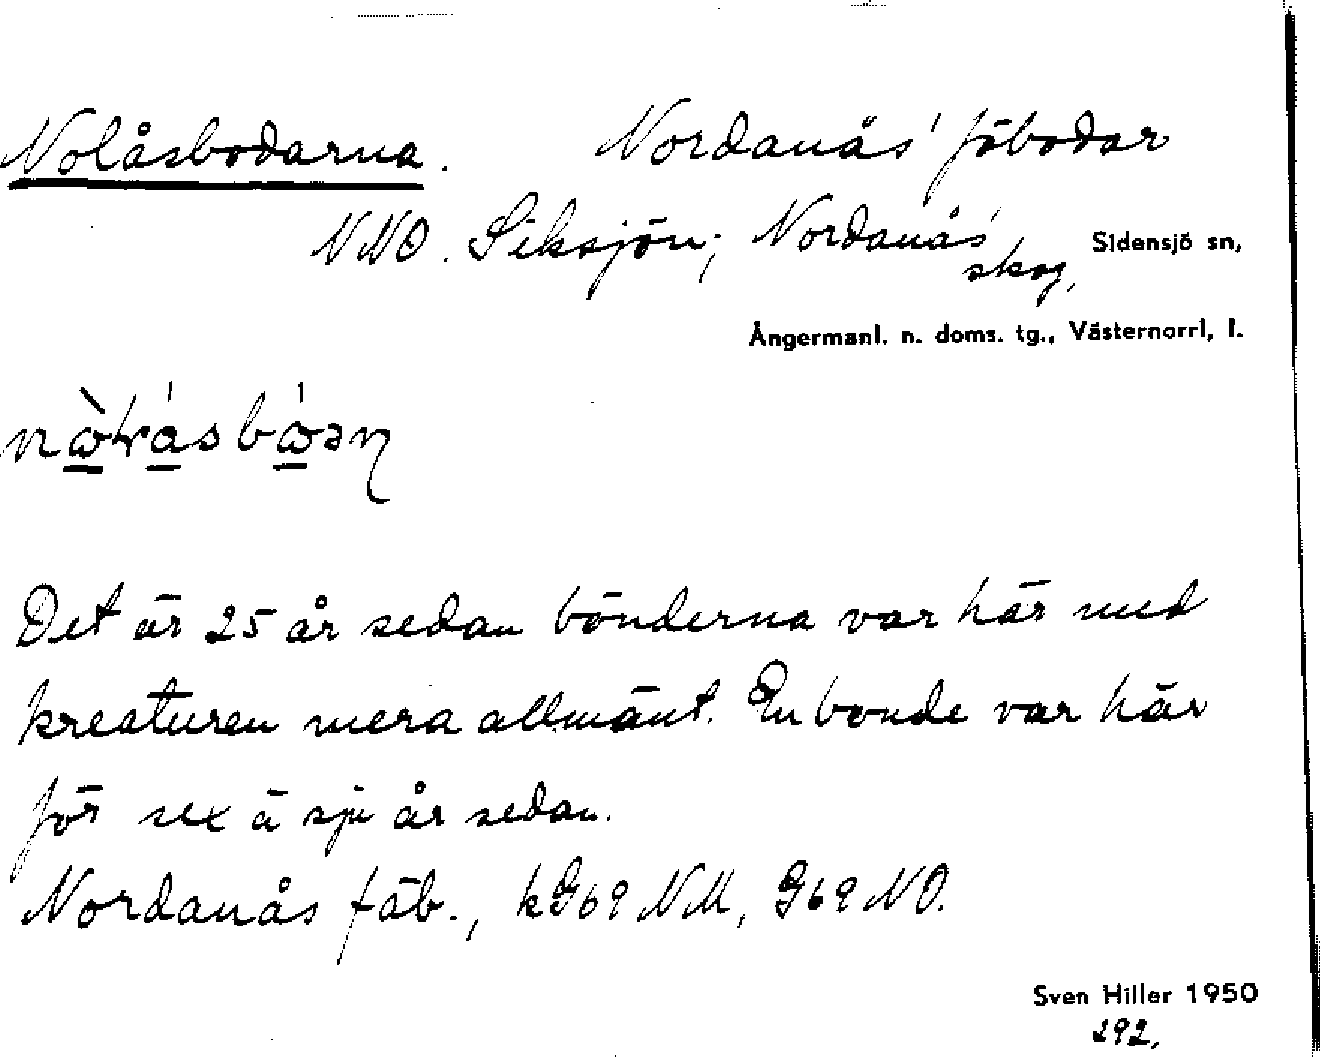 Nolåsbodarna. Nordanås' fäbodar
NNO. Siksjön; Nordanås'
skog, Sidensjö sn,
Ångermanl. n. doms. tg., Västernorrl, l.
Det är 25 år sedan bönderna var här med
kreaturen mera allmänt. En bonde var här
för sex à sju år sedan.
Nordanås fäb., kG69NM, G69NO.
Sven Hiller 1950
292.